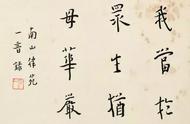 我當於
眾生猶
母華嚴
南山律苑
一音録